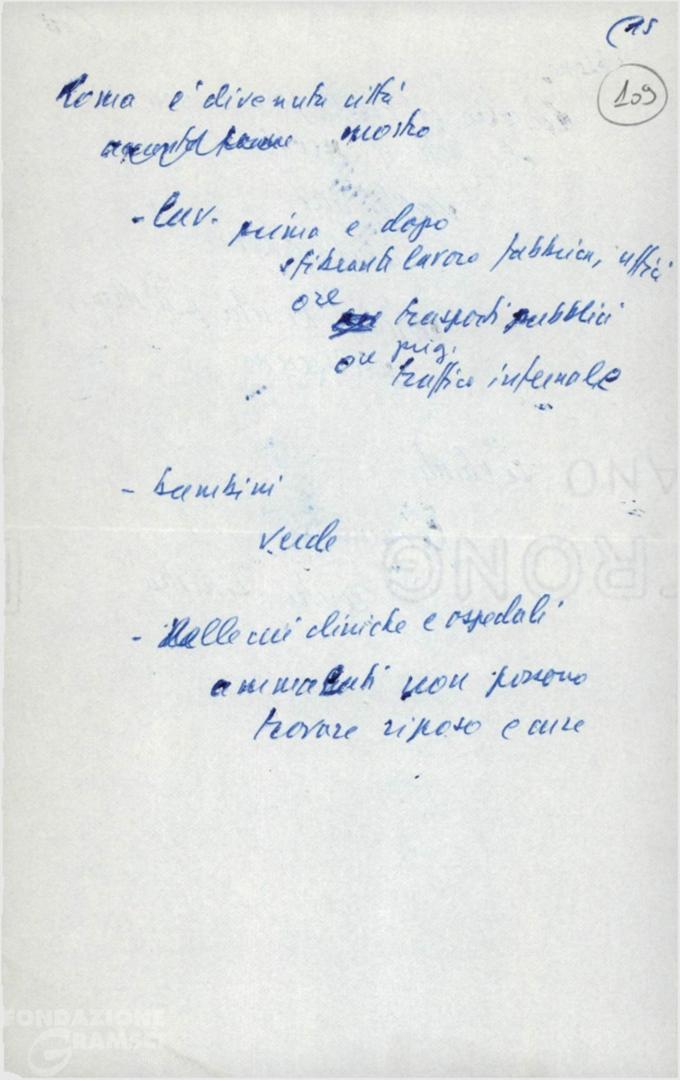 15
109
Roma e' divenuta città
mostro
- Lav. prima e dopo
sfibranti lavoro fabbrica, uffici
ore
trasporti pubblici
ore prig.
traffico infernale
- bambini
verde
- Nelle cui cliniche e ospedali
ammalati non possono
trovare riposo e cure
FONDAZIONE
GRAMSCI